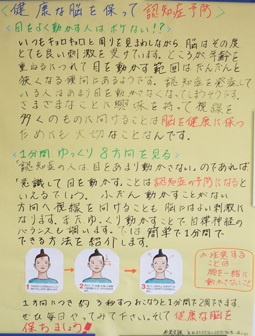 健康な脳を保って認知症予防
<目をよく動かす人はボケない!?>
いつもキョロキョロと周りを見まわしながら 脳はその度
とても良い刺激を受けています。ところが年齢を
重ねるにつれて目を動かす範囲はだんだんと
狭くなる傾向にあるようです。認知症を発症して
いる人はあまり目を動かさなくなっております。
さまざまなことに興味を持って視線を
多くのものに向けることは脳を健康に保つ
ためにも大切なことなんです。
<1分間 ゆっくり 8方向を見る>
「認知症の人は目をあまり動かさない。」のであれば
「意識して目を動かすことは認知症の予防になると
いえるでしょう。ふだん動かすことがない
方向へ視線を向けることも脳にはよい刺激に
なります。またゆっくり動かすことで自律神経の
バランスも調います。では簡単で1分間で
できる方法を紹介します。
注意する
ことは
顔を一緒に
動かさないこと
1方向につき約3秒ずつおこなうと1分間で2周できます。
ぜひ毎日やってみて下さい。そして健康な脳を
保ちましょう!